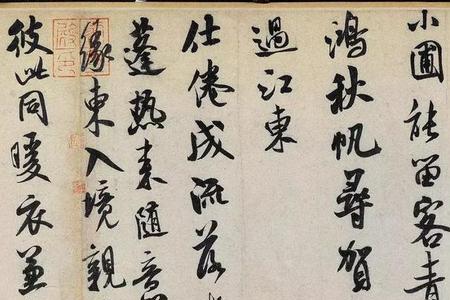 小圃能留客青
鴻秋帆尋賀
過江東
仕倦成流落
蓬熱來隨意
緣東入境親
彼此同暖衣兼